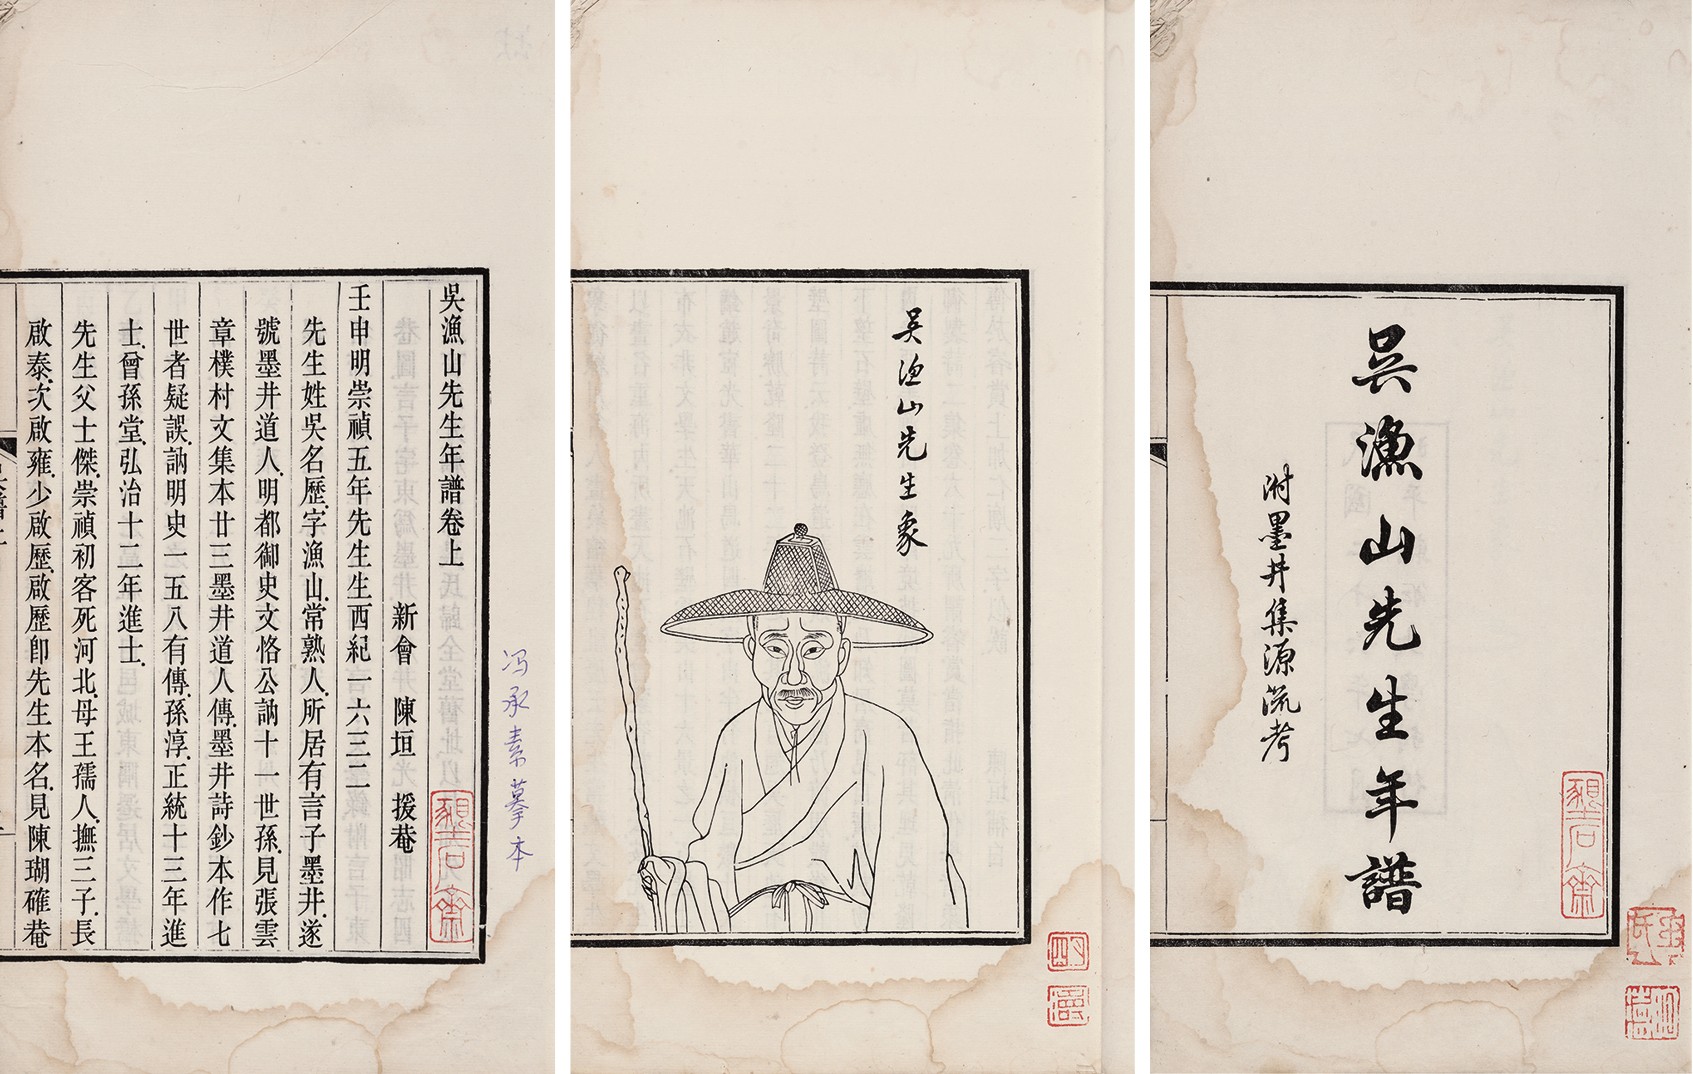 吳漁山先生年譜
附墨井集源流考
吳漁山先生象
吳漁山先生年譜卷上
新會 陳垣 援菴
壬申明崇禎五年先生生西紀一六三二
先生姓吳名歷.字漁山.常熟人.所居有言子墨井.遂
號墨井道人.明都御史文恪公訥十一世孫.見張雲
章樸村文集本廿三墨井道人傳.墨井詩鈔本作七
世者疑誤.訥明史一五八有傳.孫淳.正統十三年進
士.曾孫堂.弘治十二年進士.
先生父士傑.崇禎初客死河北.母王孺人.撫三子.長
啟泰.次啟雍.少啟歷.啟歷卽先生本名.見陳瑚確菴
冯承素摹本